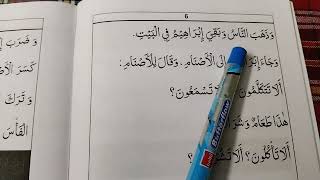 6
وَذَهَبَ النَّاسُ وَبَقِيَ إِبْرَاهِيْمُ فِي الْبَيْتِ.
وَجَاءَ إِبْرَا إِلَى الْأَصْنَامِ. وَقَالَ لِلْأَصْنَامِ:
أَلَا تَتَكَلَّمُوْنَ؟ أَلَا تَسْمَعُوْنَ؟
هٰذَا طَعَامٌ وَشَرَا
أَلَا تَأْكُلُوْنَ؟ أَلَا
وَ ضَرَبَ
كَسَرَ الْأَصْ
وَ تَرَكَ
الْفَأْسَ